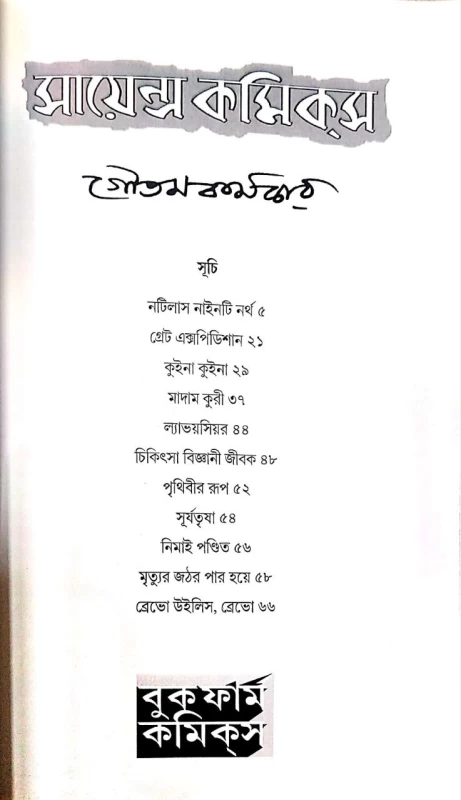 সায়েন্স কমিক্‌স
গৌতম কর্মকার
সূচি
নটিলাস নাইনটি নর্থ ৫
গ্রেট এক্সপিডিশান ২১
কুইনা কুইনা ২৯
মাদাম কুরী ৩৭
ল্যাভয়সিয়র ৪৪
চিকিৎসা বিজ্ঞানী জীবক ৪৮
পৃথিবীর রূপ ৫২
সূর্যতৃষা ৫৪
নিমাই পণ্ডিত ৫৬
মৃত্যুর জঠর পার হয়ে ৫৮
ব্রেভো উইলিস, ব্রেভো ৬৬
বুক ফার্ম
কমিক্‌স